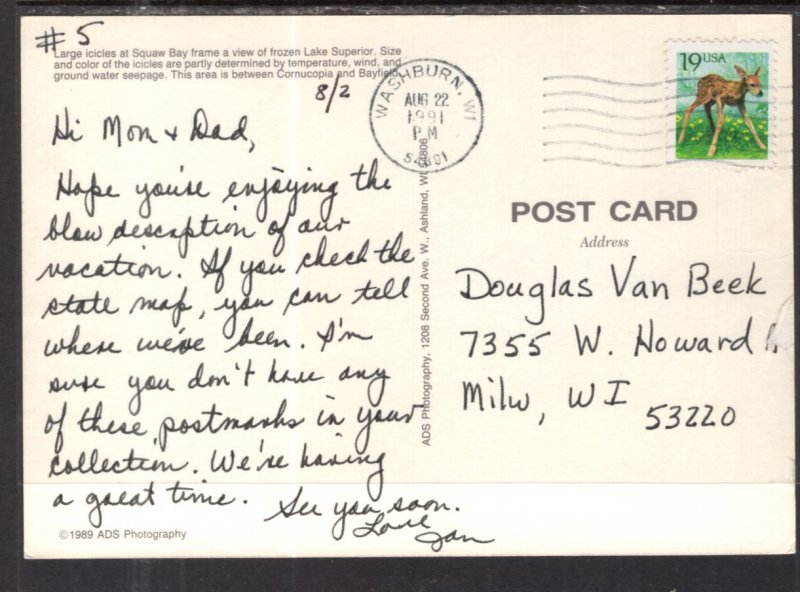 #5
Large icicles at Squaw Bay frame a view of frozen Lake Superior. Size
and color of the icicles are partly determined by temperature, wind, and
ground water seepage. This area is between Cornucopia and Bayfield.
8/2
Hi Mom + Dad,
Hope you're enjoying the
blow description of our
vacation. If you check the
state map, you can tell
where we've been. I'm
sure you don't have any
of these postmarks in your
collection. We're having
a great time. See you soon.
Love
Jan
©1989 ADS Photography
ADS Photography, 1208 Second Ave. W., Ashland, WI 54806
WASHBURN, WI
AUG 22
1991
PM
54891
19USA
POST CARD
Address
Douglas Van Beek
7355 W. Howard
Milw, WI
53220